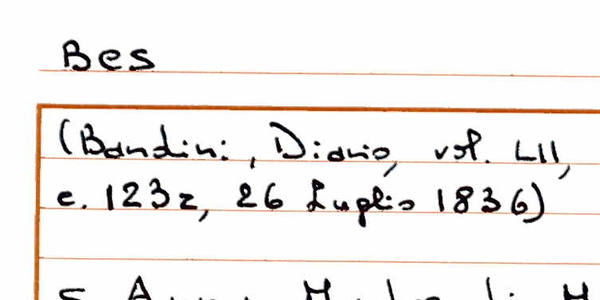 Bes
(Bandini, Diario, vol. LII,
c. 123r, 26 Luglio 1836)